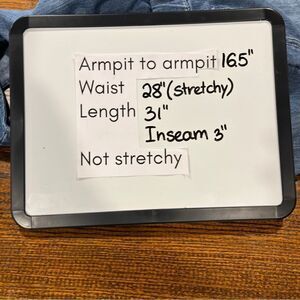 Armpit to armpit 16.5"
Waist 28" (stretchy)
Length 31"
Inseam 3"
Not stretchy